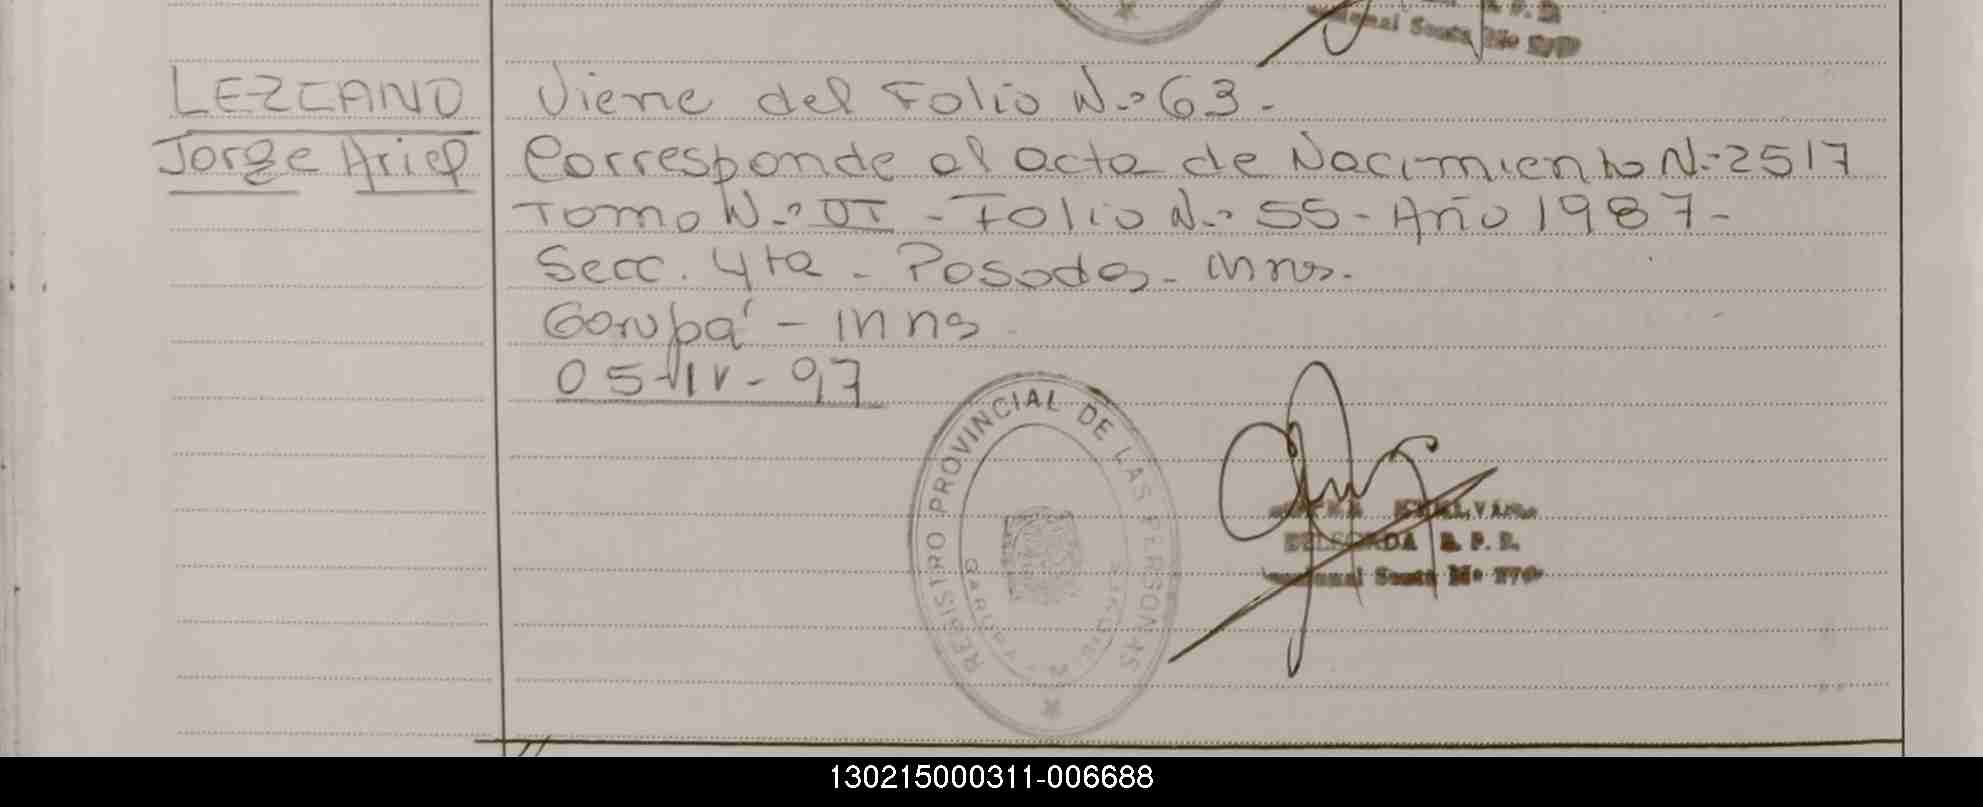 LEZCANO
Jorge Ariel
Viene del Folio N.º 63.-
Corresponde al acta de Nacimiento N.º 2517
Tomo N.º VI - Folio N.º 55 - Año 1987 -
Secc. 4ta - Posadas - Mnes.
Garupá - Mnes
05-IV-97
REGISTRO PROVINCIAL DE LAS PERSONAS
GARUPA
DELEGADA R. P. P.
130215000311-006688